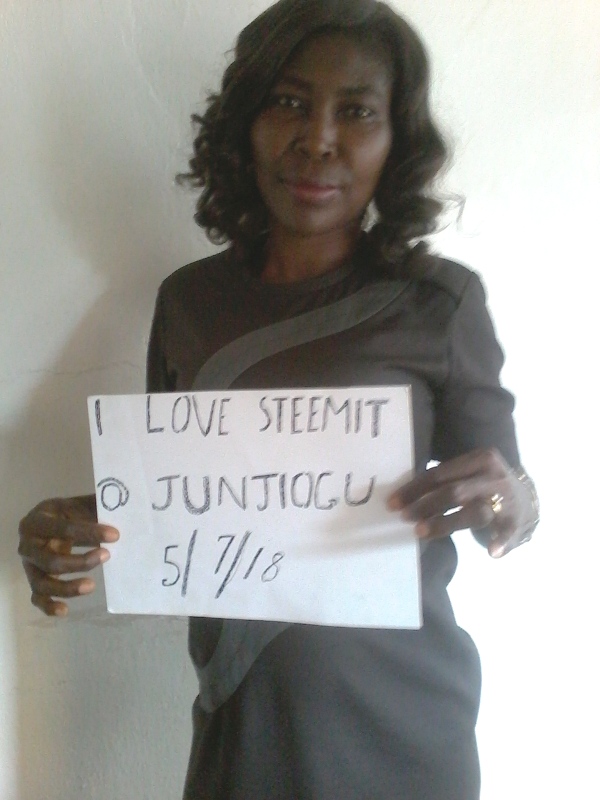 I LOVE STEEMIT
@ JUNJIOGU
5/7/18